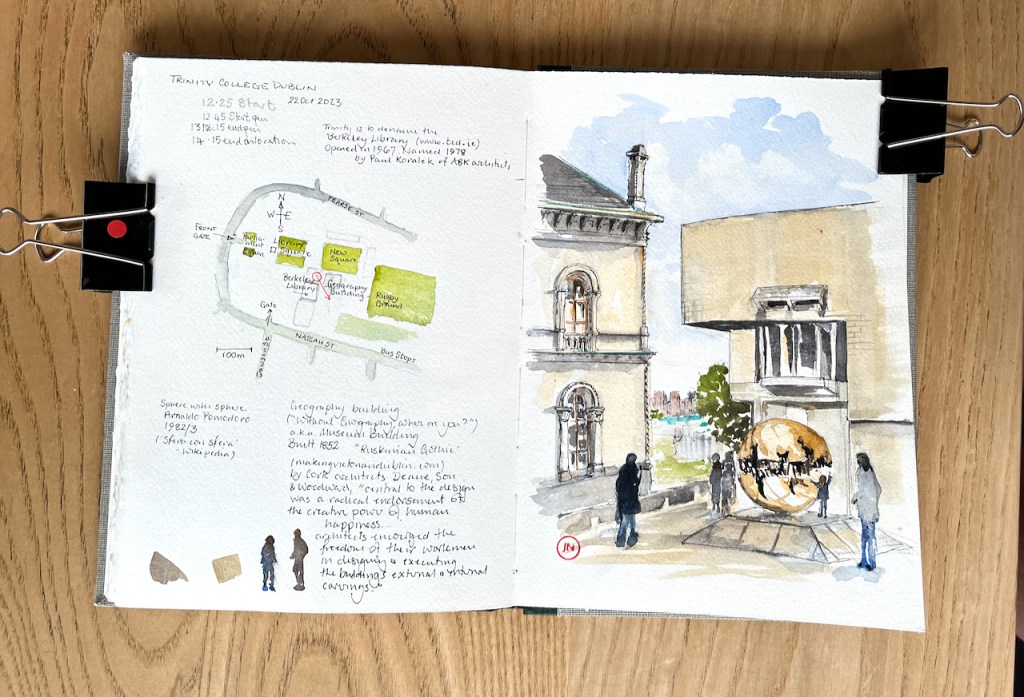 TRINITY COLLEGE DUBLIN
12.25 Start 22 Oct 2023
12.45 Start pm
13 15 end pm
14.15 end on location
Trinity is to dename the
Berkeley Library (www.tcd.ie)
Opened in 1967. Named 1978
by Paul Koralek of ABK architects,
PEARSE ST.
N
W E
S
FRONT
GATE
Library
Square
New
Square
Berkeley
Library
Geography
Building
Rugby
Ground
Gate
NASSAU ST.
Bus Stops
DAWSON ST
100m
Sphere within sphere
Arnaldo Pomodoro
1982/3
('Sfera con sfera'
Wikipedia)
Geography building
("Without Geography, where are you?")
a.k.a. Museum Building
Built 1852 "Ruskinian Gothic"
by Cork architects Deane, Son
& Woodward, "central to the design
was a radical endorsement of
the creative power of human
happiness...
architects encourged the
freedom of their workemen
in designing & executing
the buildings external & internal
carvings."
JN